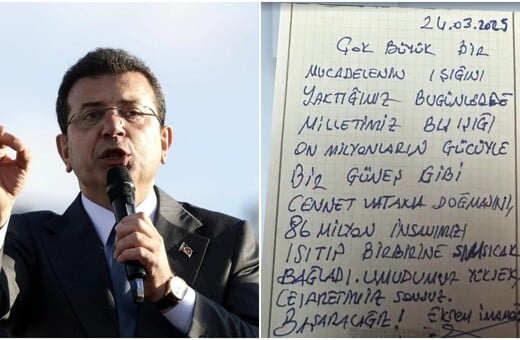 24.03.2025
ÇOK BÜYÜK BİR
MÜCADELENİN IŞIĞINI
YAKTIĞIMIZ BUGÜNLERDE
MİLLETİMİZ BU IŞIĞI
ON MİLYONLARIN GÜCÜYLE
BİR GÜNEŞ GİBİ
CENNET VATANA DOĞMASINI,
86 MİLYON İNSANIMIZI
ISITIP BİRBİRİNE SIMSICAK
BAĞLADI. UMUDUMUZ YÜKSEK,
CESARETİMİZ SONSUZ.
BAŞARACAĞIZ! EKREM İMAMOĞ